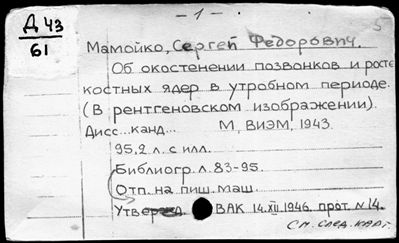 - 1 -
5
Д 43
61
Мамойко, Сергей Федорович.
Об окостенении позвонков и росте
костных ядер в утробном периоде.
(В рентгеновском изображении).
Дисс...канд... М, ВИЭМ, 1943.
95,2 л. с илл.
Библиогр. л. 83-95.
Отп. на пиш. маш.
Утвержд. ВАК 14.XII.1946. прот. N 14.
См. след. карт.